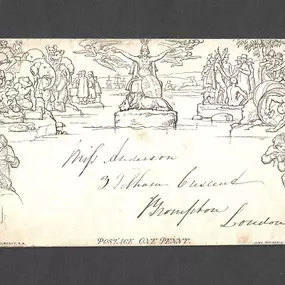 Miss Anderson
3 Pelham Crescent
Brompton
London
POSTAGE ONE PENNY.